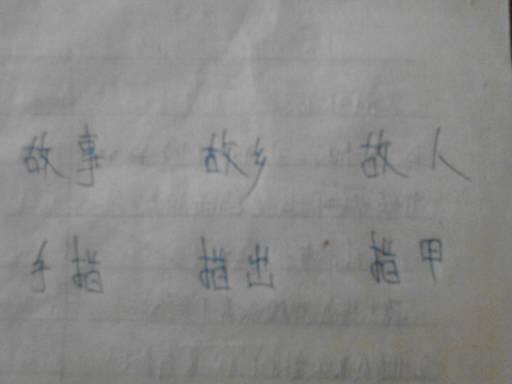 故事 故乡 故人
手指 指出 指甲